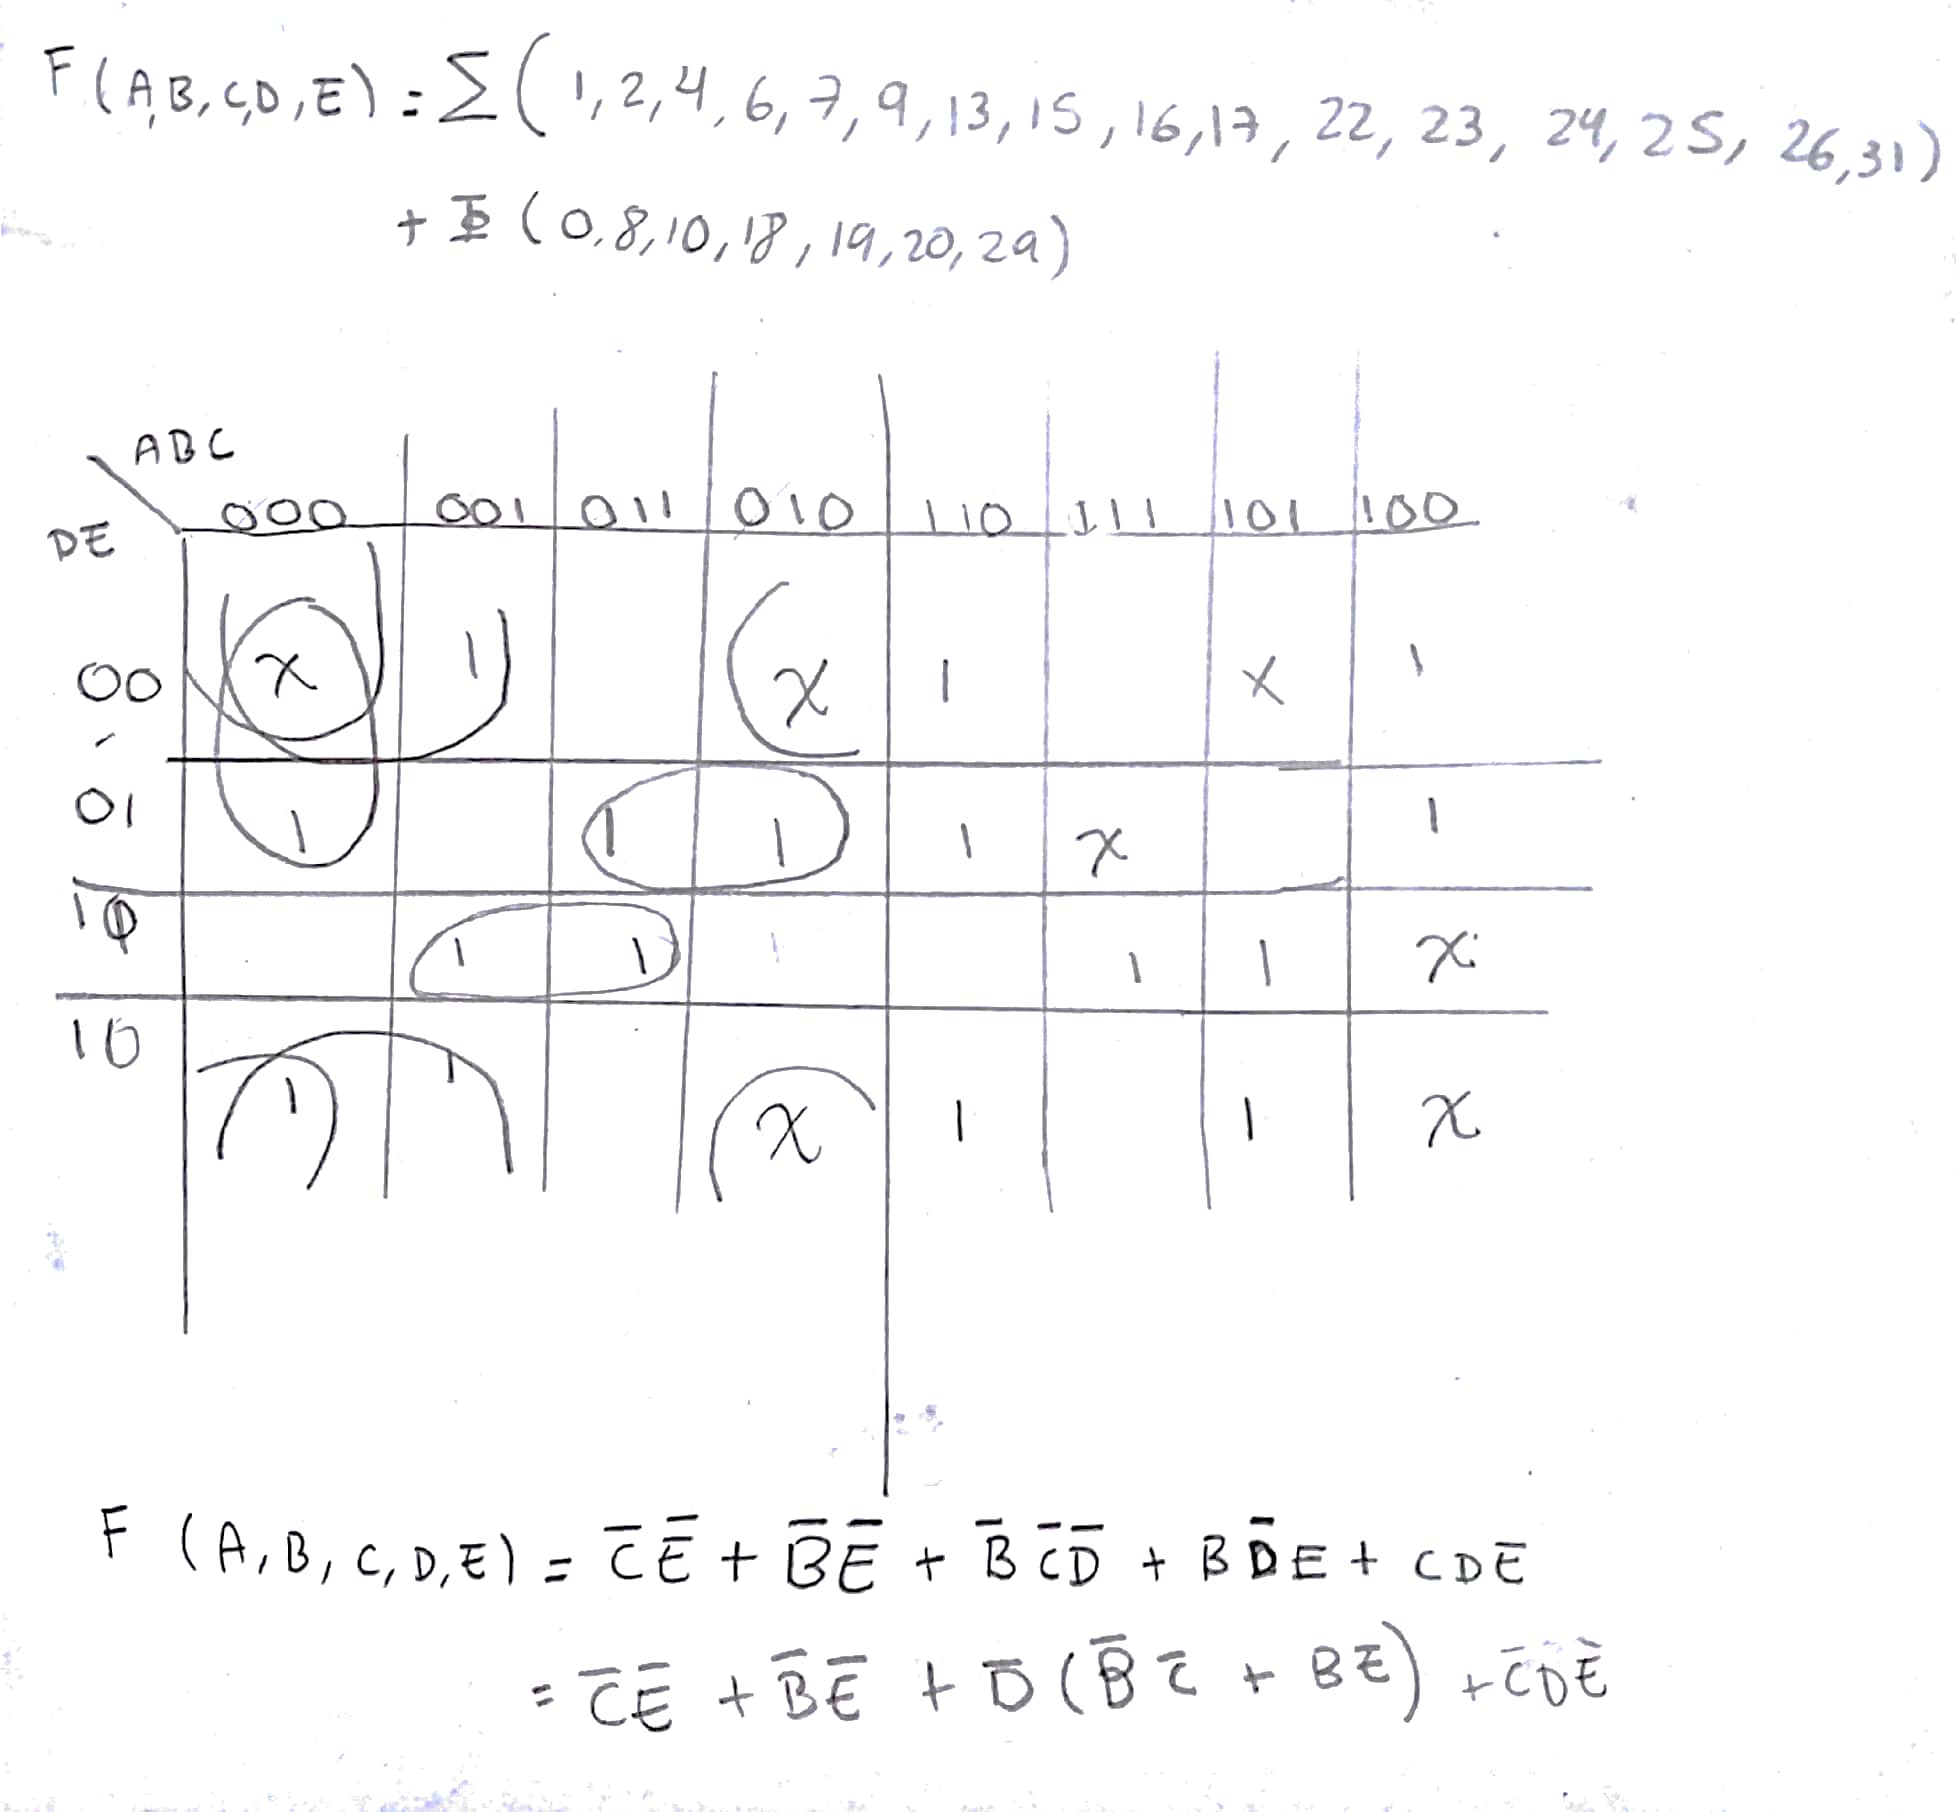 F(A,B,C,D,E) = Σ( 1,2,4,6,7,9,13,15,16,17,22,23,24,25,26,31)
+ Φ (0,8,10,18,19,20,29)
ABC
DE 000 001 011 010 110 111 101 100
00 x 1 x 1 x 1
01 1 1 1 1 x 1
1 1 1 1 1 1 x
10 1 1 x 1 1 x
F (A,B,C,D,E) = C̅E̅ + B̅E̅ + B̅C̅D̅ + BD̅E + CDE̅
= C̅E̅ + B̅E̅ + D̅(B̅C̅ + BE̅) + C̅DE̅